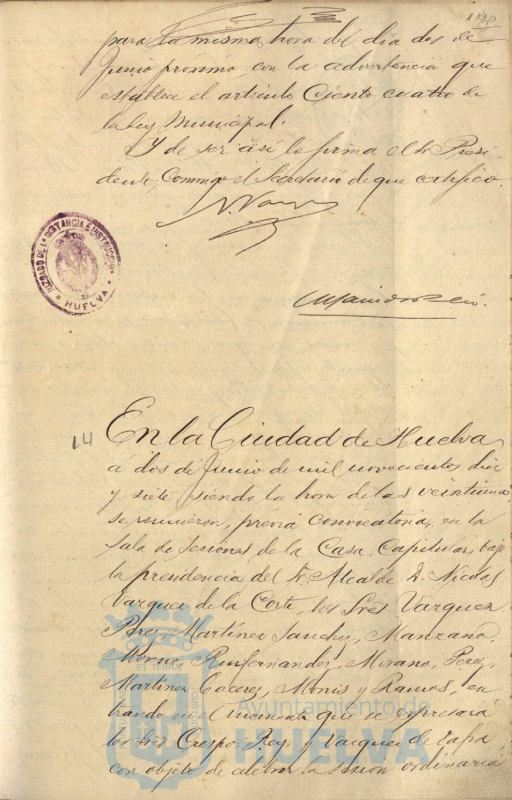 para la misma hora del dia dos de
Junio proximo, con la advertencia que
establece el articulo Ciento cuatro de
la ley Municipal.
Y de ser asi lo firma el Sr Presi-
dente, Conmigo el Secretario de que certifico.
JUZGADO DE 1ª INSTANCIA E INSTRUCCION
HUELVA
14
En la Ciudad de Huelva
á dos de Junio de mil novecientos diez
y siete siendo la hora de las veintiuna
se reunieron, previa convocatoria, en la
Sala de sesiones de la Casa Capitular, bajo
la presidencia del Sr. Alcalde D. Nicolas
Vazquez de la Corte, los Sres Vazquez
Perez, Martinez Sanchez, Manzano,
Ruifernandez, Morano, Perez,
Martinez Cacerez, Monis y Ramos, en-
trando en el momento que se expresará
los Sres Crespo, Rey, y Vazquez de Zafra
con objeto de celebrar la sesion ordinaria
Ayuntamiento de
HUELVA